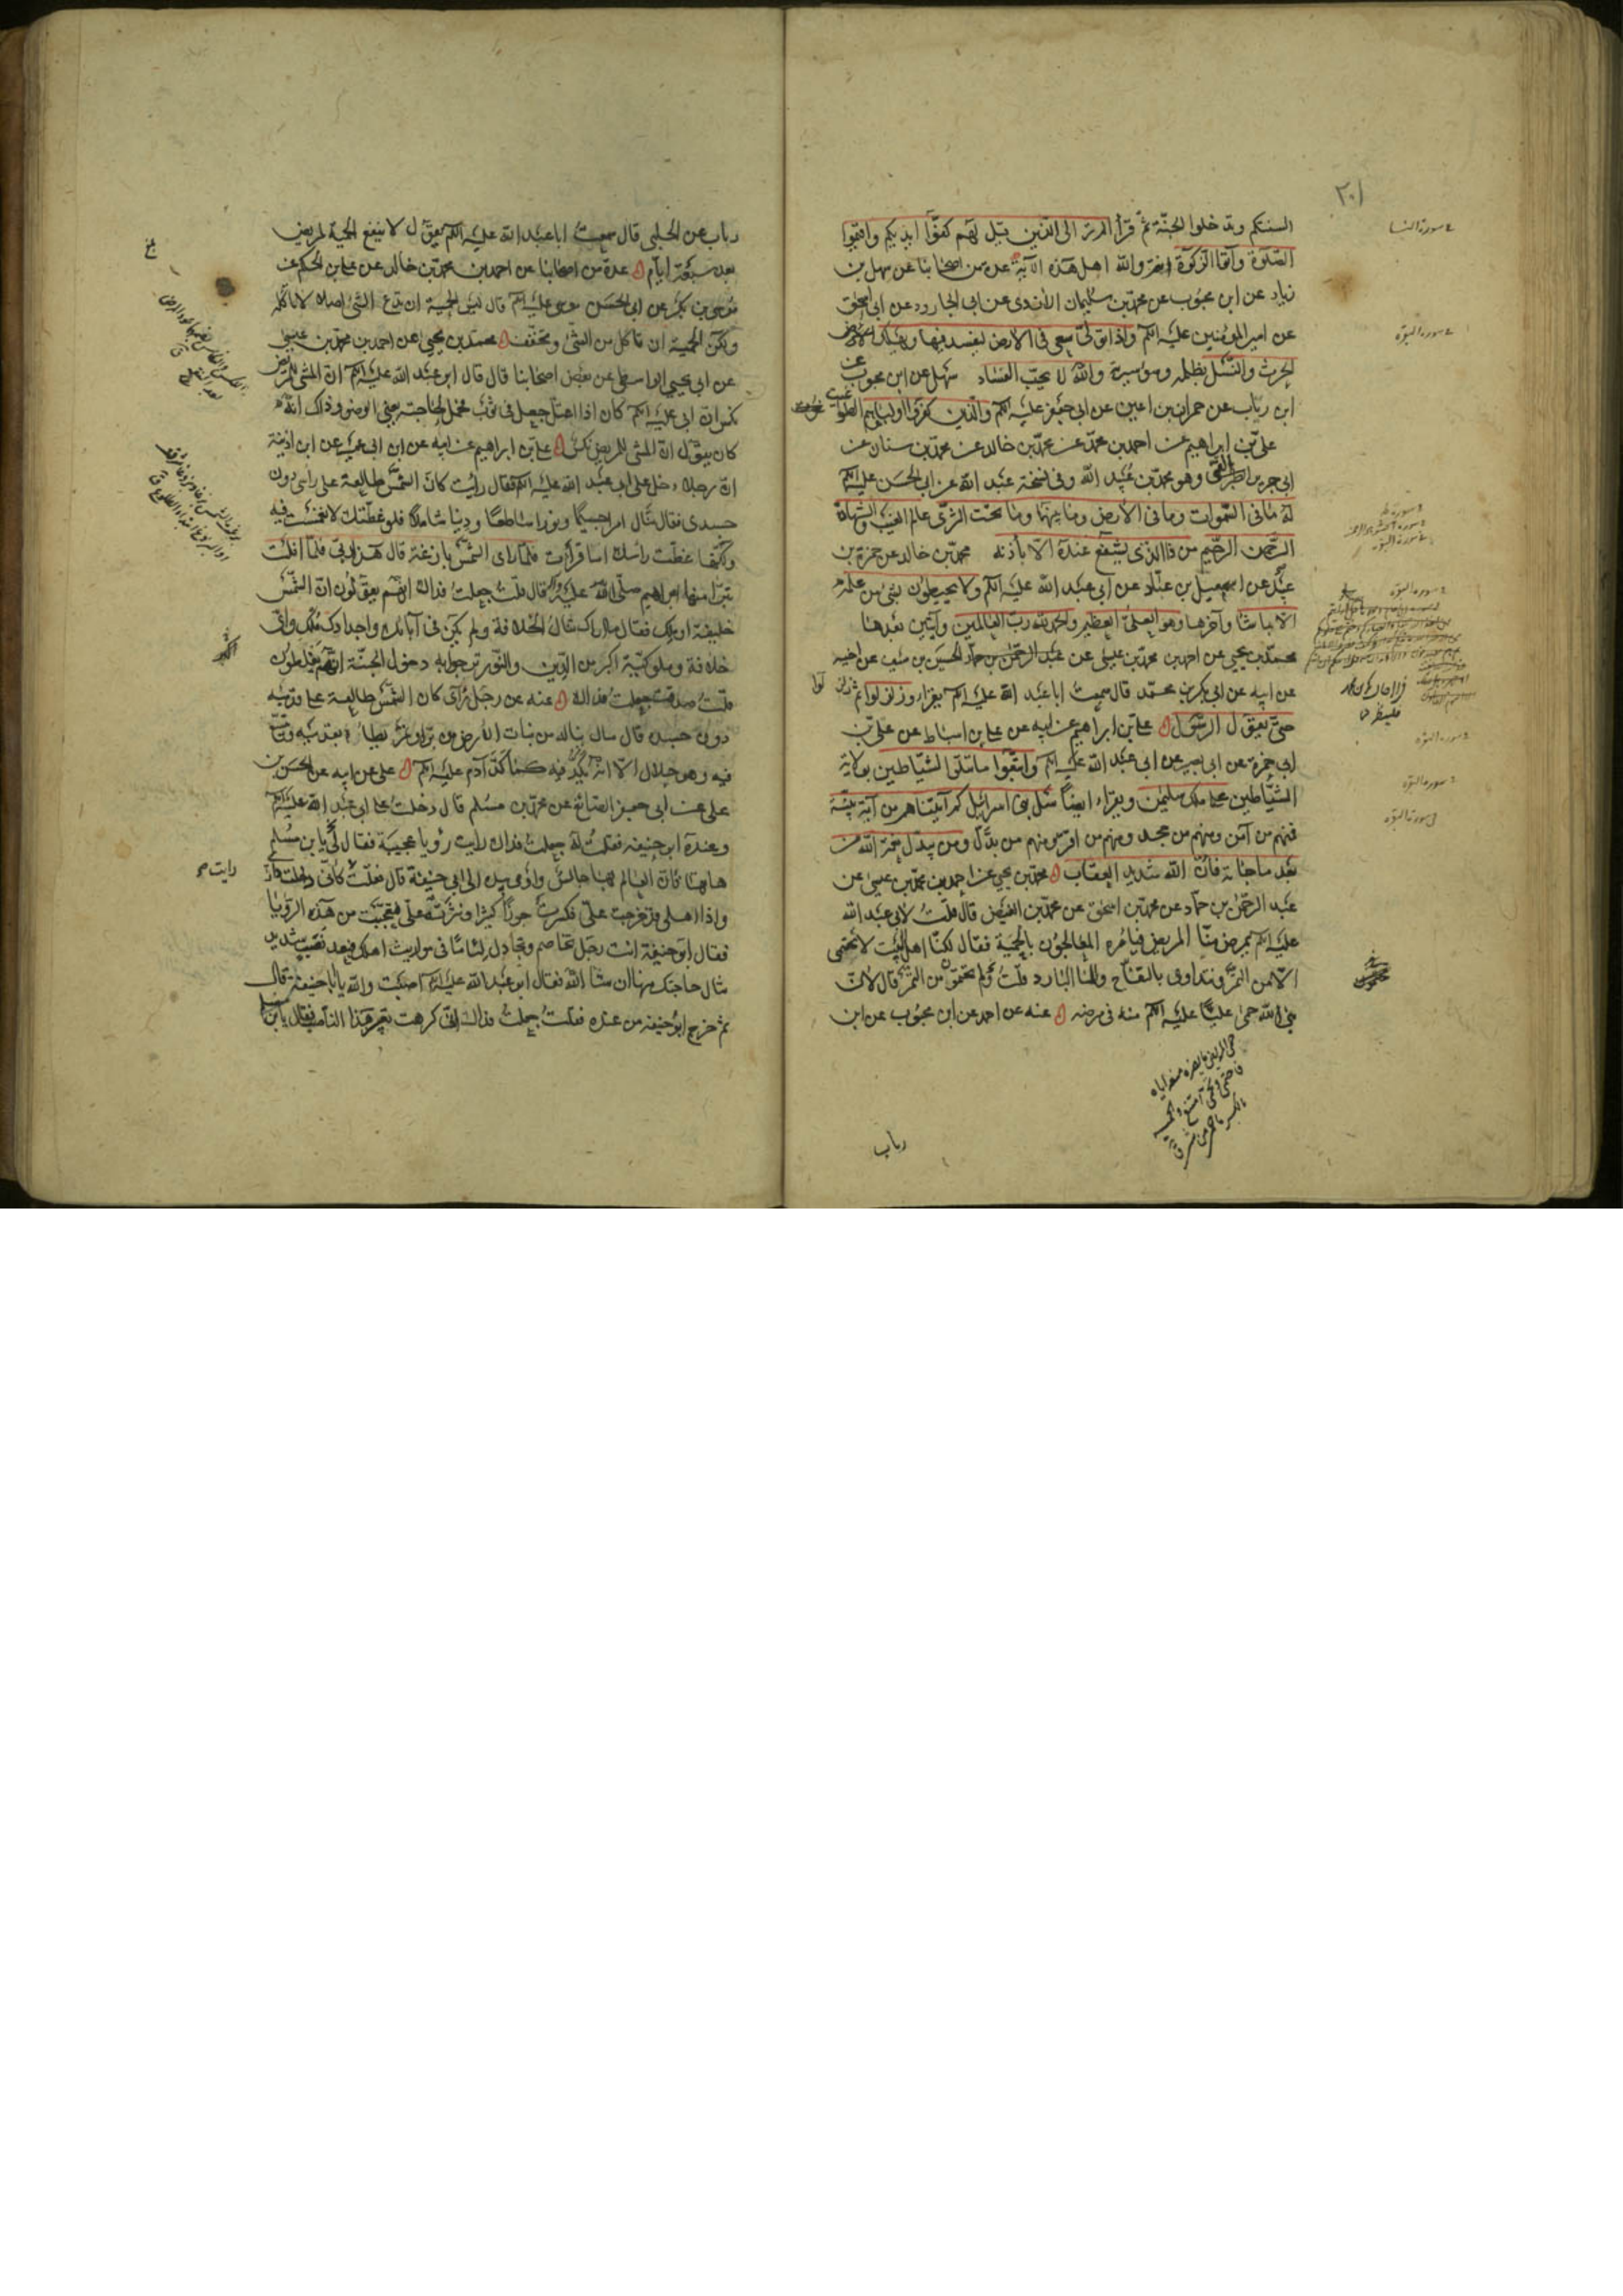 السنتكم وتدخلوا الجنّة ثمّ قرأ الم تر الى الّذين قيل لهم كفّوا ايديكم واقيموا
الصّلوة وآتوا الزكوة انتم والله اهل هذه الآية عدة من اصحابنا عن سهل بن
زياد عن ابن محبوب عن محمد بن سليمان الازدى عن ابى الجارود عن ابى اسحق
عن امير المؤمنين عليه السلم واذا تولّى سعى فى الارض ليفسد فيها ويهلك
الحرث والنّسل بظلمه وسوء سيرته والله لا يحبّ الفساد سهل عن ابن محبوب عن
ابن رياب عن حمران بن اعين عن ابى جعفر عليه السلم والّذين كفروا اولياؤهم الطواغيت
على بن ابراهيم عن احمد بن محمد عن محمد بن خالد عن محمد بن سنان عن
ابى جرير القمى وهو محمد بن عبيد الله وفى نسخة عبد الله عن ابى الحسن عليه السلم
له ما فى السّموات وما فى الارض وما بينهما وما تحت الثرى عالم الغيب والشهادة
الرّحمن الرّحيم من ذا الذى يشفع عنده الّا باذنه محمد بن خالد عن حمزة بن
عبيد عن اسمعيل بن عبّاد عن ابى عبد الله عليه السلم ولا يحيطون بشئ من علمه
الا بما شاء وآخرها وهو العلىّ العظيم والحمد لله ربّ العالمين وآيتين بعدها
محمد بن يحيى عن احمد بن محمد بن عيسى عن عبد الرّحمن بن حمّاد الحسين بن سيف عن اخيه
عن ابيه عن ابى بكر بن محمد قال سمعت ابا عبد الله عليه السلم يقراء وزلزلوا ثم زلزلوا
حتى يقول الرّسول على بن ابراهيم عن ابيه عن على بن اسباط عن على بن
ابى حمزة عن ابى بصير عن ابى عبد الله عليه السلم واتّبعوا ما تتلوا الشّياطين بولاية
الشّياطين على ملك سليمن ويقراء ايضا سل بنى اسرائيل كم آتيناهم من آية بيّنة
فمنهم من آمن ومنهم من جحد ومنهم من اقرّ ومنهم من بدّل ومن يبدّل نعمة الله من
بعد ما جائته فانّ الله شديد العقاب محمد بن يحيى عن احمد بن محمد بن عيسى عن
عبد الرّحمن بن حمّاد عن محمد بن اسحق عن محمد بن الفيض قال قلت لابى عبد الله
عليه السلم يمرض منّا المريض فيأمره المعالجون بالحمية فقال لكنّا اهل البيت لا نحتمى
الّا من التمر ونتداوى بالتفّاح والماء البارد قلت ولم تحتمون من التمر قال لانّ
نبىّ الله حمى عليّا عليه السلم منه فى مرضه عنه عن احمد عن ابن محبوب عن ابن
رياب
رياب عن الحلبى قال سمعت ابا عبد الله عليه السلم يقول لا ينفع الحمية لمريض
بعد سبعة ايّام عدة من اصحابنا عن احمد بن محمد بن خالد عن على بن الحكم عن
موسى بن بكر عن ابى الحسن موسى عليه السلم قال ليس الحمية ان تدع الشئ اصلا لا تأكله
ولكنّ الحمية ان تأكل من الشئ وتخفّف محمد بن يحيى عن احمد بن محمد بن عيسى
عن ابى يحيى الواسطى عن بعض اصحابنا قال قال ابو عبد الله عليه السلم انّ المشى للمريض
نكس انّ ابى عليه السلم كان اذا اعتلّ جعل فى ثوب فحمل لحاجته يعنى الوضوء وذاك انّه
كان يقول انّ المشى للمريض نكس على بن ابراهيم عن ابيه عن ابن ابى عمير عن ابن اذينة
انّ رجلا دخل على ابى عبد الله عليه السلم فقال رأيت كانّ الشّمس طالعة على رأسى دون
جسدى فقال تنال امرا جسيما ونورا ساطعا ودينا شاملا فلو غطّتك لانغمست فيه
ولكنّها غطّت رأسك اما قرأت فلمّا رأى الشّمس بازغة قال هذا ربّى فلمّا افلت
تبرّأ منها ابراهيم صلى الله عليه وآله قال قلت جعلت فداك انّهم يقولون انّ الشّمس
خليفة او ملك فقال ما اراك تنال الخلافة ولم يكن فى آبائك واجدادك ملك واىّ
خلافة وملوكيّة اكبر من الدّين والنّور ترجو به دخول الجنّة انّهم يغلطون
قلت صدقت جعلت فداك عنه عن رجل رأى كانّ الشّمس طالعة على قدميه
دون جسده قال مال يناله من نبات الارض من برّ او تمر يطاه بقدميه ويتّسع
فيه وهو حلال الّا انّه يكدّ فيه كما كدّ آدم عليه السلم على عن ابيه عن الحسن بن
على عن ابى جعفر الصّائغ عن محمد بن مسلم قال دخلت على ابى عبد الله عليه السلم
وعنده ابو حنيفة فقلت له جعلت فداك رايت رؤيا عجيبة فقال لى يا بن مسلم
هاتها فانّ العالم بها جالس وأومى بيده الى ابى حنيفة قال فقلت كانّى دخلت دارى
رايت
واذا اهلى قد خرجت علىّ فكسرت جوزا كثيرا ونثرته علىّ فتعجّبت من هذه الرّؤيا
فقال ابو حنيفة انت رجل تخاصم وتجادل لئاما فى مواريث اهلك فبعد نصب شديد
تنال حاجتك منها ان شاء الله فقال ابو عبد الله عليه السلم اصبت والله يا ابا حنيفة قال
ثم خرج ابو حنيفة من عنده فقلت جعلت فداك انّى كرهت تعبير هذا النّاصب فقال يا بن مسلم